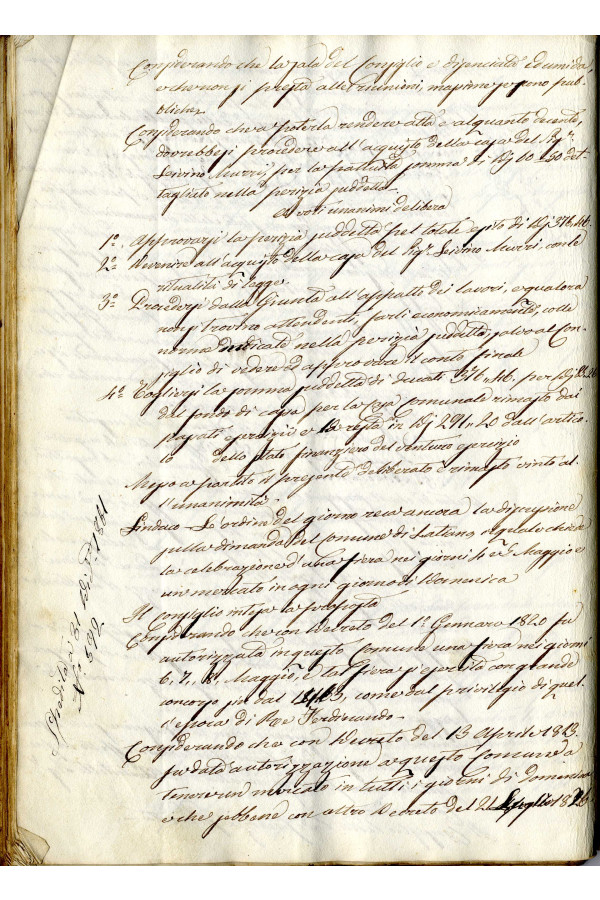 Considerando che la sala del Consiglio è disensutà ed umida,
e che non si presta alle riunioni, massime se sono pub-
bliche
Considerando che a poterla rendere atta e alquanto decente,
dovrebbesi procedere all'acquisto della casa del Sigr
Livino Murri, per la pattuita somma di Dj 80.20 det-
tagliato nella perizia suddetta
A voti unanimi delibera
1º. Approvarsi la perizia suddetta pel totale esito di Dj 376,46.
2º Divenire all'acquisto della casa del Sigr Livino Murri con le
ritualità di legge.
3º Procedersi dalla Giunta all'appalto dei lavori, e qualora
non si trovino attendenti, farli economicamente, colle
norme indicate nella perizia suddetta, salvo al Con-
siglio di vedere ed approvare il conto finale
4º Togliersi la somma suddetta di ducati 376,46. per
dal fondo di cassa per la Cassa Comunale rimasto dai
passati esercizi e il resto in Dj 291,20 dall'artico-
lo dello stato finanziero del venturo esercizio
Messo a partito il presente deliberato è rimasto vinto al-
l'unanimità.
Sindaco - L'ordine del giorno reca ancora la discussione
sulla dimanda del Comune di Latiano, il quale chiede
la celebrazione d'una fiera nei giorni Maggio e
un mercato in ogni giorno di Domenica
Il Consiglio inteso la proposta
Considerando che con Decreto del 1º Gennaro 1820 fu
autorizzata in questo Comune una fiera nei giorni
6, 7, 8, Maggio, e la fiera si esercita con grande
concorso sin dal, come dal privilegio di quel-
l'epoca di Re Ferdinando.
Considerando che con Decreto del 13 Aprile 1813.
fu data autorizzazione a questo Comune a
tenere un mercato in tutti i giorni di Domenica
e che sebbene con altro Decreto del 21 Luglio
Spedita a' 31 1881
Nº 592